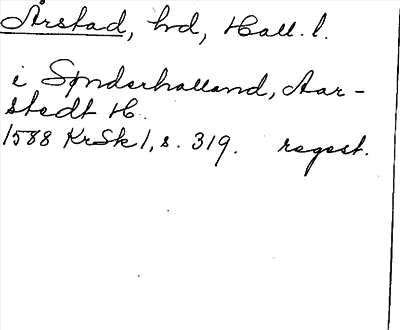 Årstad, hd, Hall. l.
i Synderhalland, Aar-
stedt H.
1588 KrSk 1, s. 319. regest.